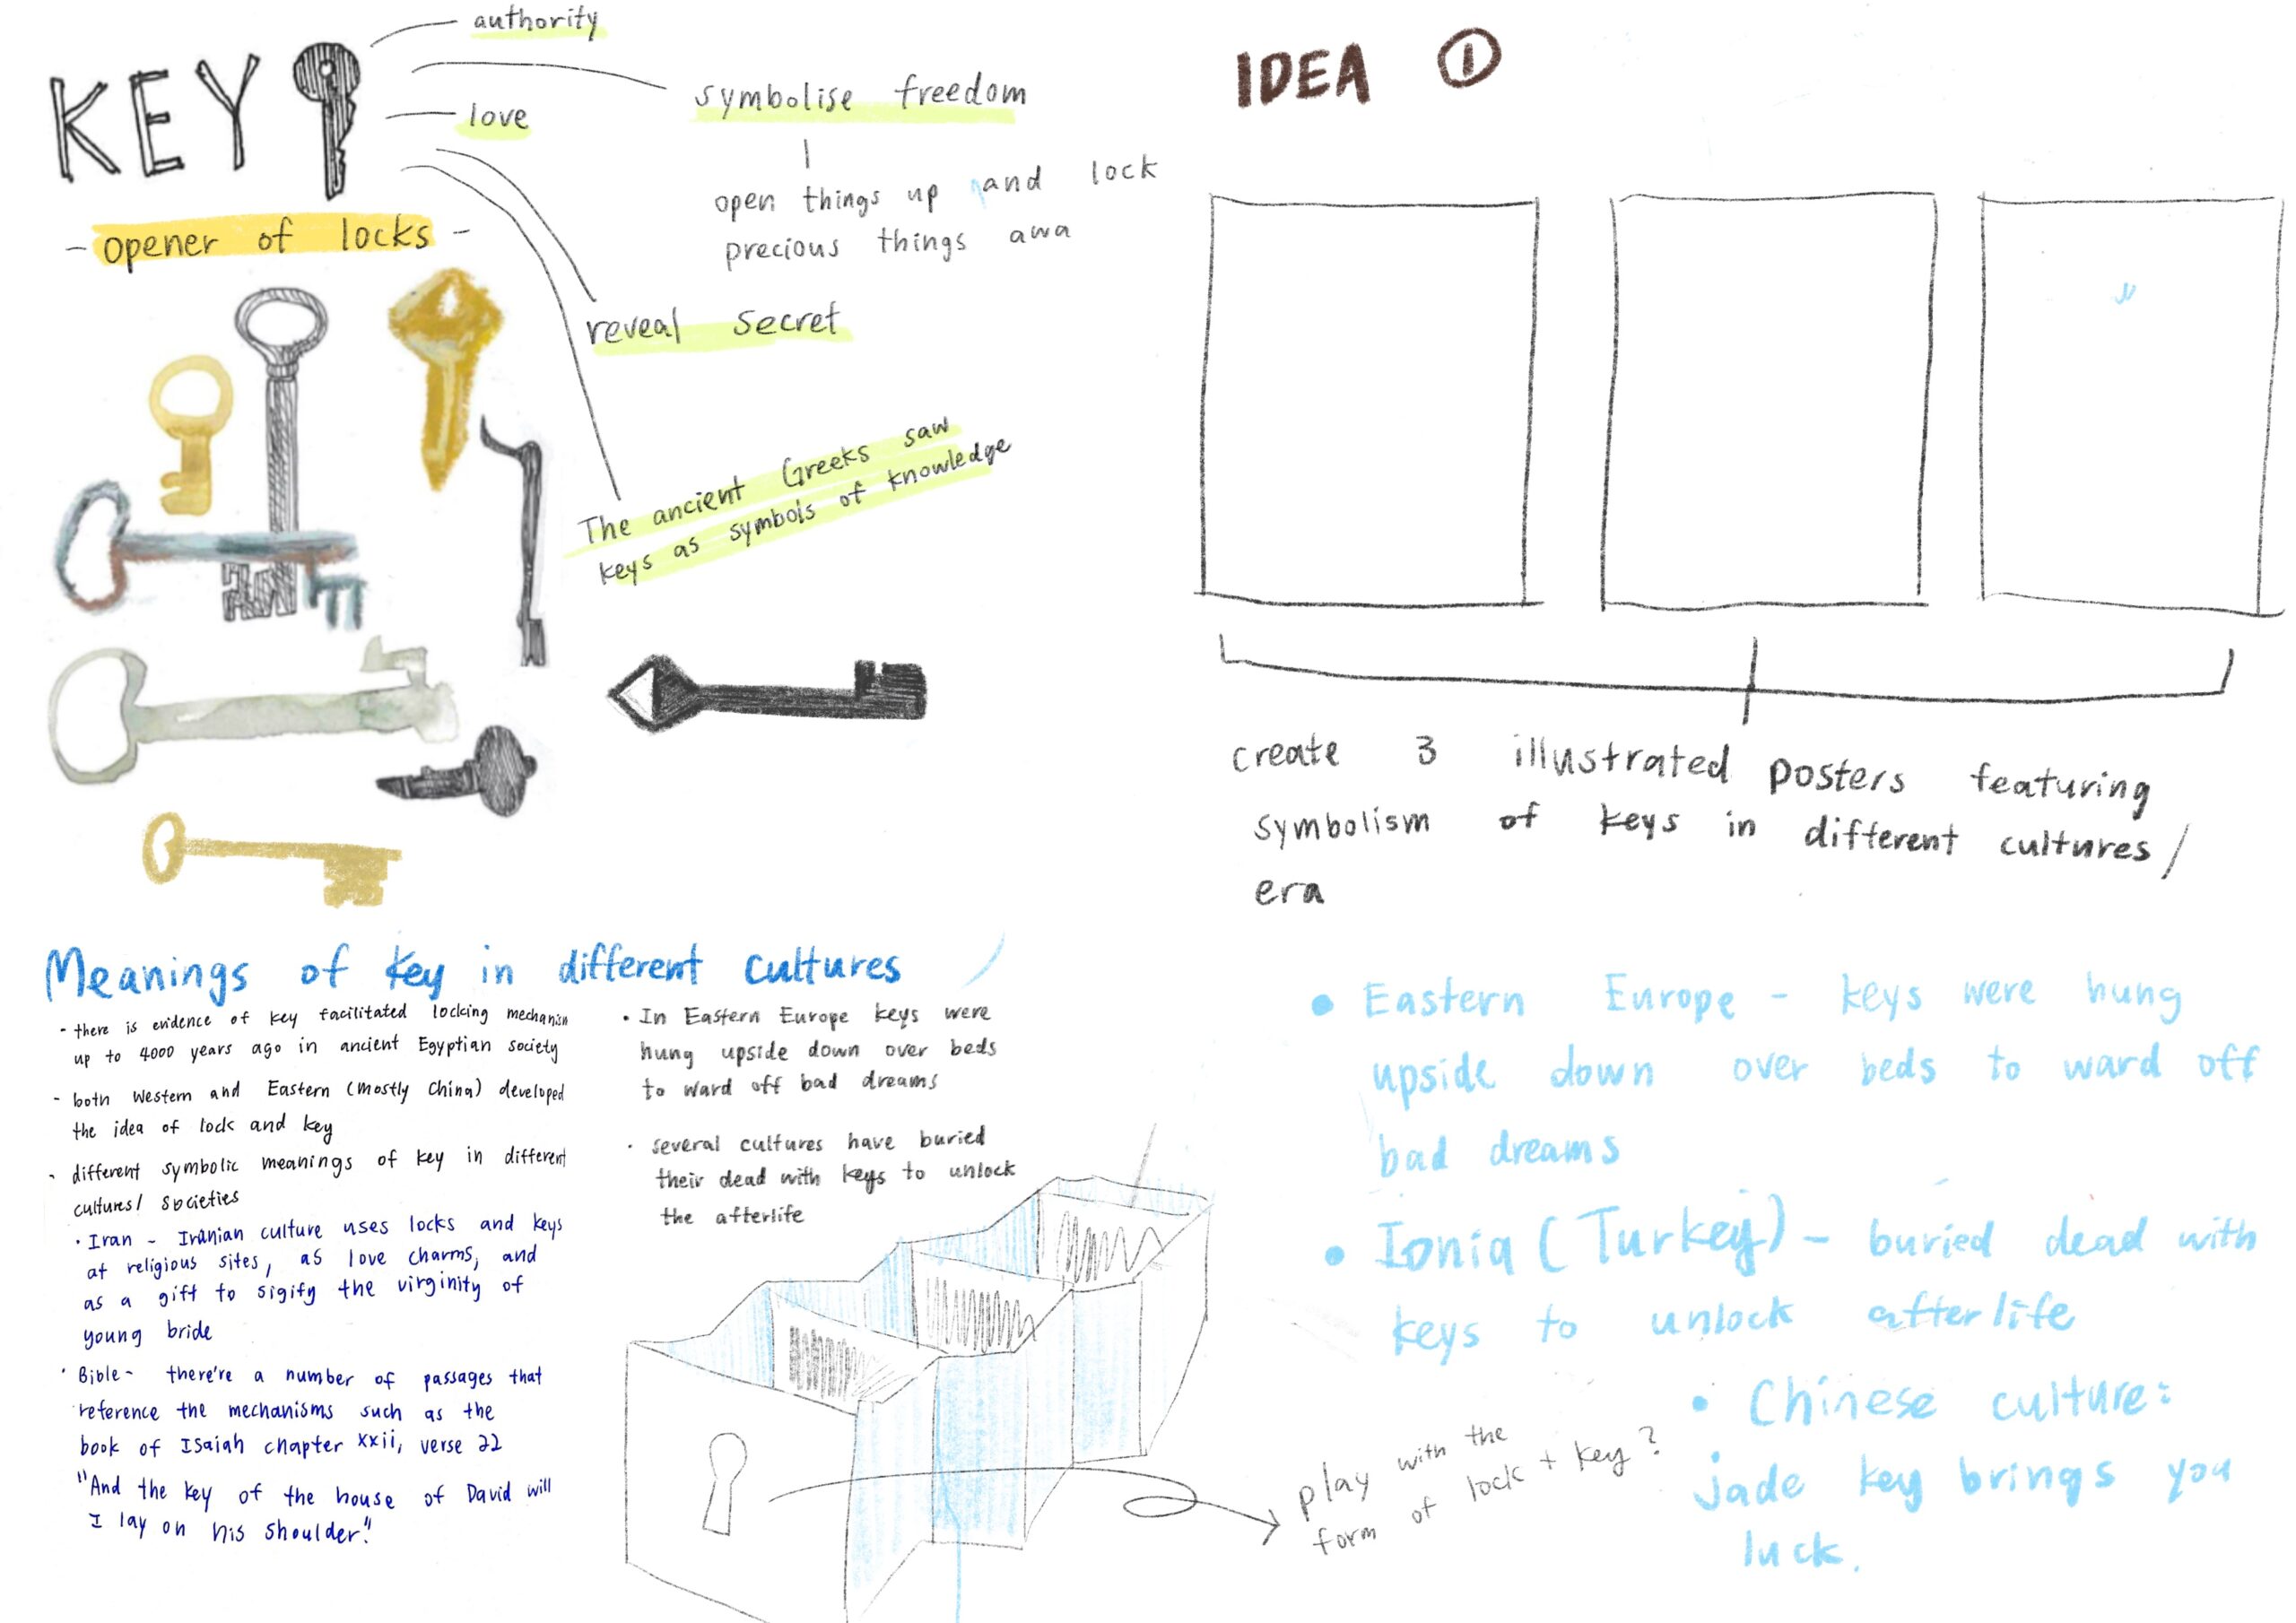 KEY
authority
love
symbolise freedom
open things up and lock
precious things awa
- opener of locks -
reveal secret
The ancient Greeks saw
keys as symbols of knowledge
IDEA ①
create 3 illustrated posters featuring
symbolism of keys in different cultures/
era
Meanings of key in different cultures
- there is evidence of key facilitated locking mechanism
up to 4000 years ago in ancient Egyptian society
- both Western and Eastern (mostly China) developed
the idea of lock and key
- different symbolic meanings of key in different
cultures/ societies
• Iran - Iranian culture uses locks and keys
at religious sites, as love charms, and
as a gift to sigify the virginity of
young bride
• Bible - there're a number of passages that
reference the mechanisms such as the
book of Isaiah chapter xxii, verse 22
"And the key of the house of David will
I lay on his shoulder."
• In Eastern Europe keys were
hung upside down over beds
to ward off bad dreams
• several cultures have buried
their dead with keys to unlock
the afterlife
play with the
form of lock + key?
• Eastern Europe - keys were hung
upside down over beds to ward off
bad dreams
• Ionia (Turkey) - buried dead with
keys to unlock afterlife
• Chinese culture:
jade key brings you
luck.